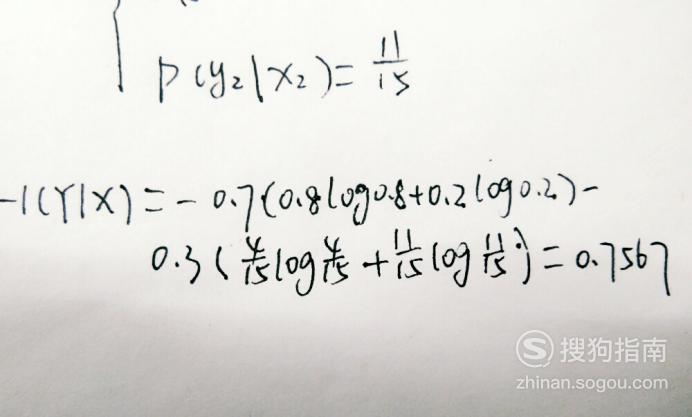 P(y₂|x₂) = 11/15
H(Y|X) = - 0.7(0.8log0.8+0.2log0.2) -
0.3(4/15log4/15 + 11/15log11/15) = 0.7567
搜狗指南
zhinan.sogou.com